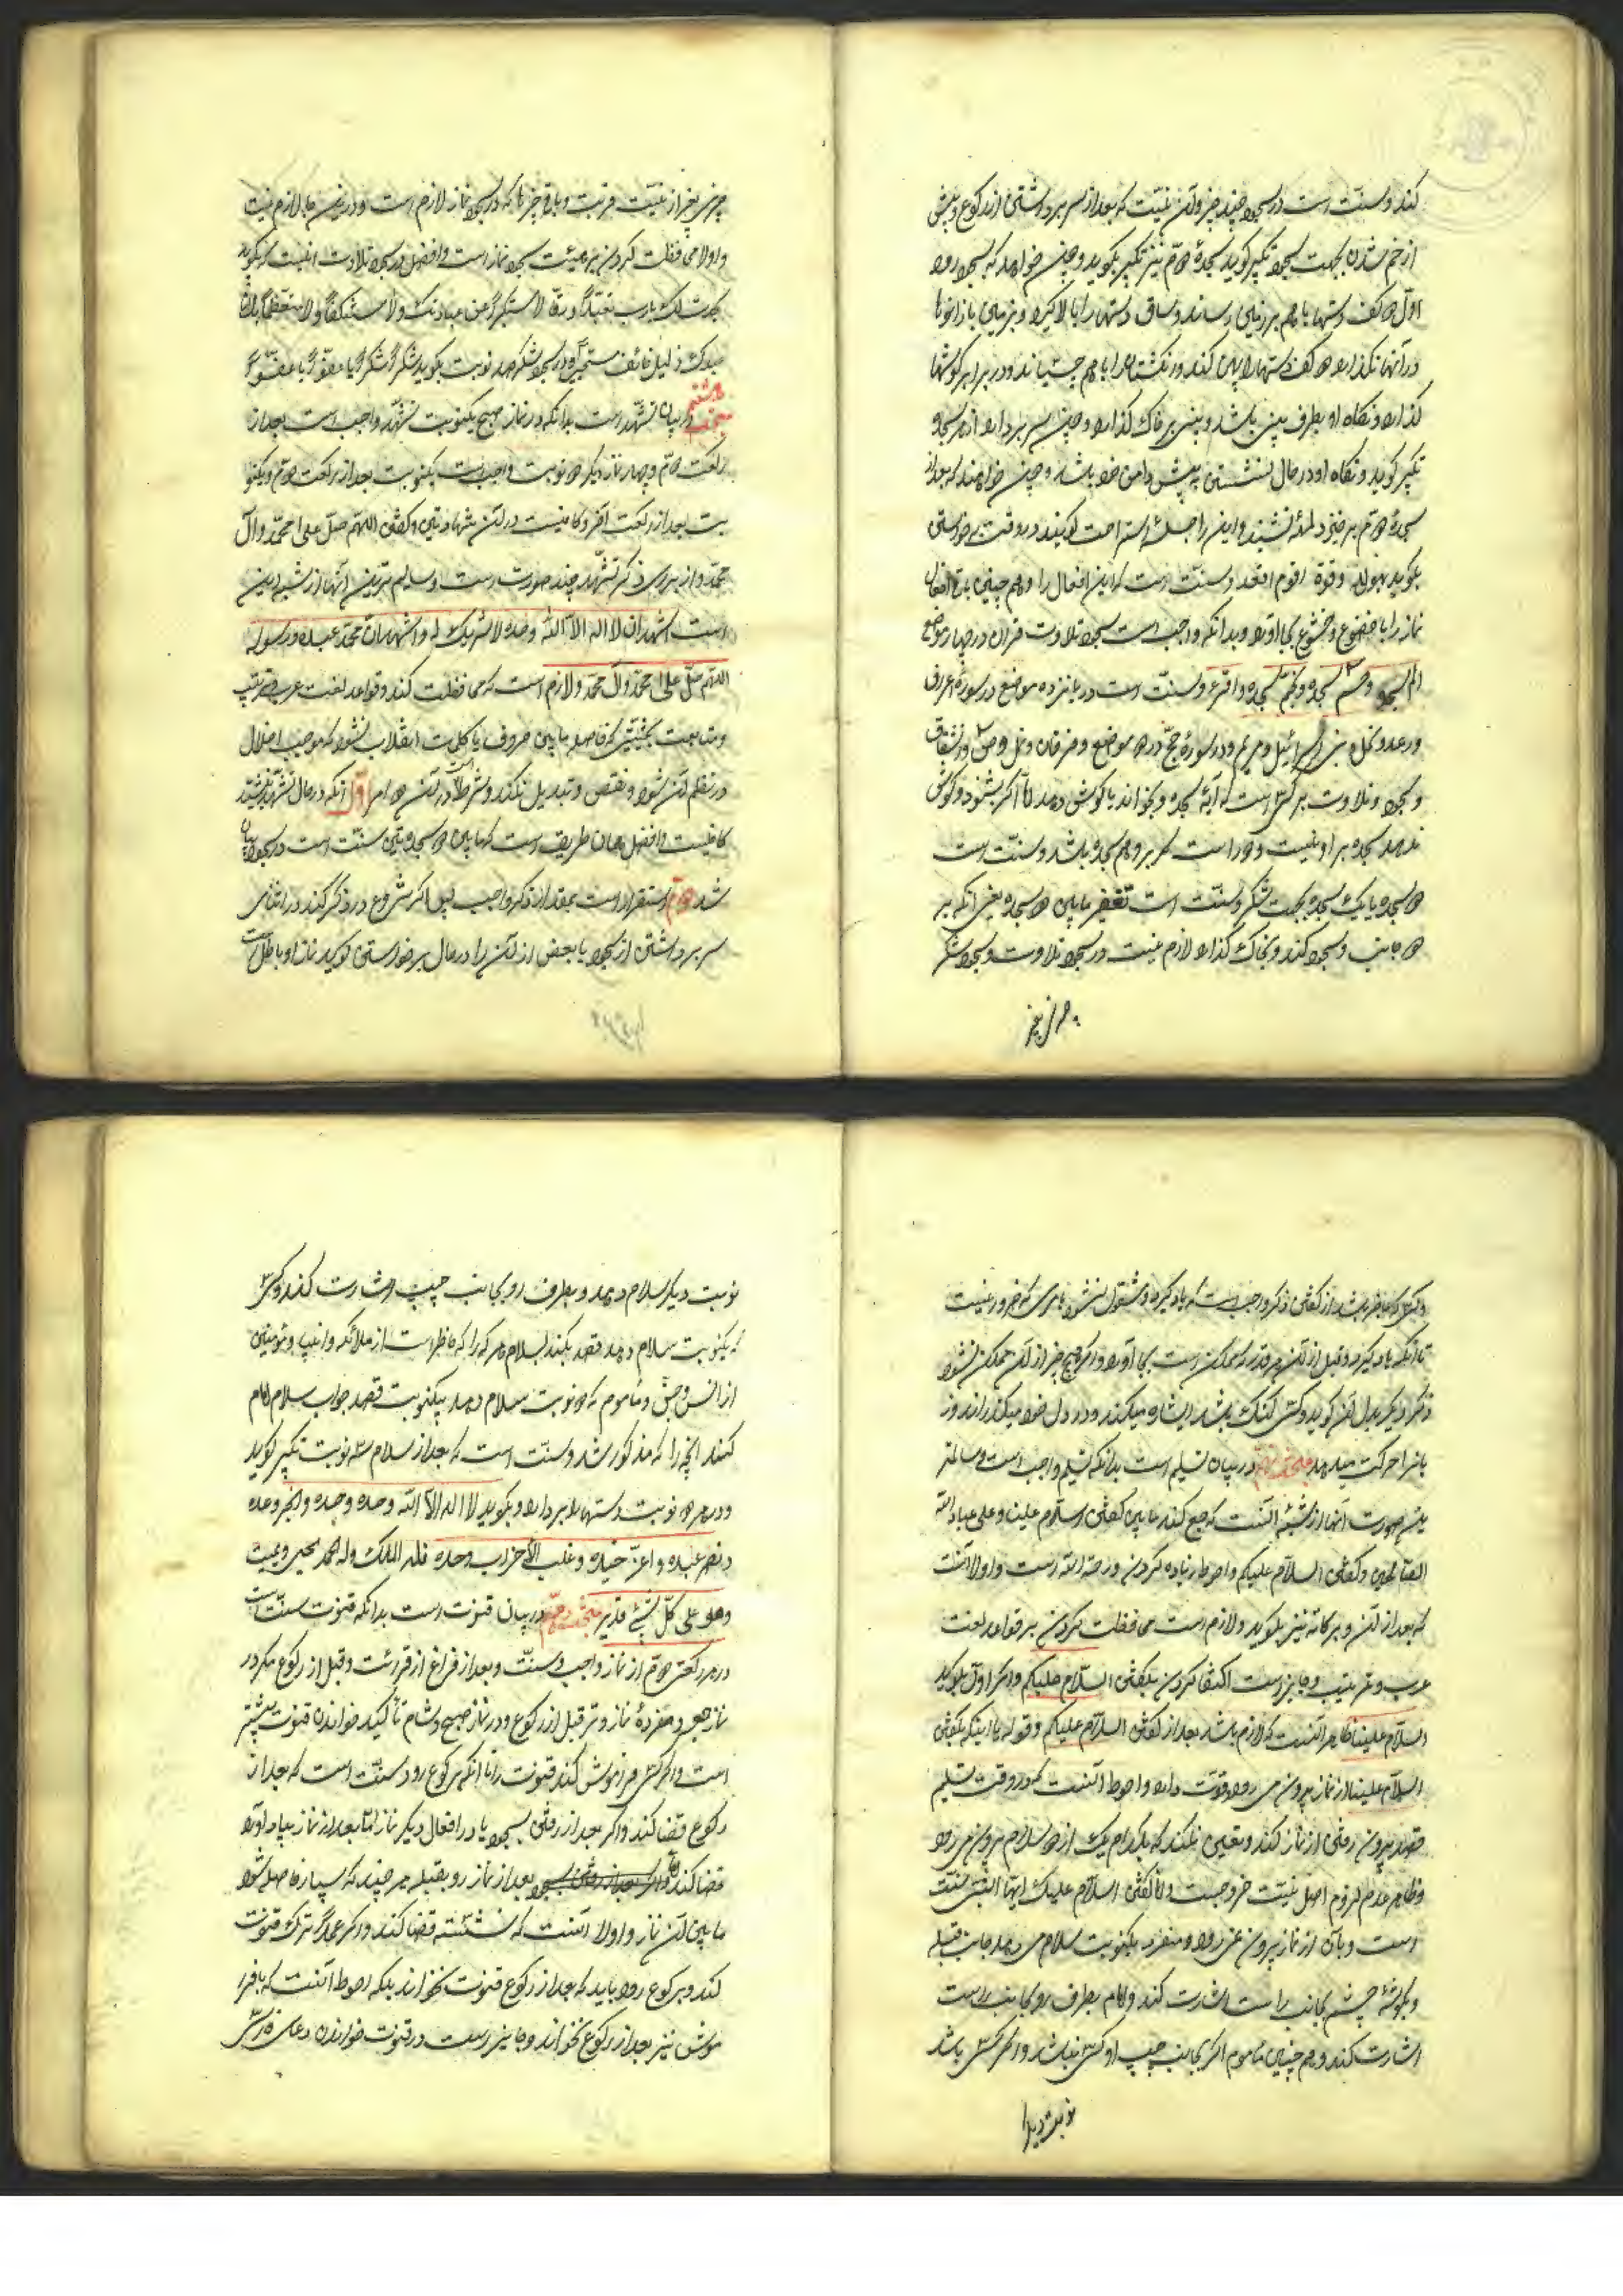 کند و سنّت است در سجود چند چیز و آن نیست که بعد از سر برداشتن از رکوع و پیش
از خم شدن بجهت سجود تکبیر گوید سجدهٔ دوّم نیز تکبیر بگوید و چون خواهد که بسجود رود
اول دو کف دستها با هم بر زمین رساند و ساق دستها را بالا گیرد و بر زمین با زانوها
در آنها نگذارد دو کف دستها را پهن کند و انگشتها را با هم چسباند و در برابر گوشها
گذارد و نگاه او بطرف بینی باشد و بینی بر خاک گذارد و چون سر بردارد از هر سجود
تکبیر گوید و نگاه او در حال نشستن به پیش دامن خود باشد و چون خواهد که بعد از
سجدهٔ دوّم برخیزد لمحهٔ نشیند و این را جلسهٔ استراحت گویند در وقت برخواستن
بگوید بحول الله و قوّة اقوم و اقعد و سنّت است که این افعال را و هم چنین باقی افعال
نماز را با خضوع و خشوع بجا آورد و بدانکه واجب است سجود تلاوت قرآن در چهار موضع
الم سجده و حم سجده و نجم سجده و اقرء و سنّت است در یانزده موضع در سورهٔ اعراف
و رعد و نحل و بنی اسرائیل و مریم و در سورهٔ حج در دو موضع و فرقان و نمل و ص و انشقاق
و سجود و تلاوت بر کسی است که آیهٔ سجده و بخواند یا گوش دهد امّا اگر بشنود و گوش
ندهد سجده بر او نیست و دور است که بر او هم سجده باشد و سنّت است
دو سجده یا یک سجده بجهت شکر و سنّت است تعفیر مابین دو سجده یعنی آنکه بر
دو جانب و سجود کند و بخاک گذارد لازم نیست در سجود تلاوت و سجود شکر
چیزی بغیر از نیّت قربت و باقی چیزها که در سجود نماز لازم است و در این جا لازم نیست
و اولا محافظت کردن بر هیئت سجود نماز است و افضل در سجود تلاوت اینست که بگوید
سجدت لک یا رب تعبّداً و رقّاً لا مستکبراً عن عبادتک و لا مستنکفاً و لا متعظّماً بل انا
عبدک ذلیل خائف مستجیر و در سجود شکر صد نوبت بگوید شکراً شکراً یا عفواً یا عفواً
مبحث هشتم در بیان تشهّد است بدانکه در نماز صبح یکنوبت تشهّد واجب است بعد از
رکعت دوّم و چهار نماز دیگر دو نوبت واجب است یکنوبت بعد از رکعت دوّم و یکنو
بت بعد از رکعت آخر و کافیست در آن شهادتین و گفتن اللّهم صلّ علی محمّد و آل
محمّد و از برای ذکر تشهّد چند صورت است و سالم ترین آنها از شبه این
است اشهد ان لا اله الّا اللّه وحده لا شریک له و اشهد ان محمّد عبده و رسوله
اللّهم صلّ علی محمّد و آل محمد و لازم است که محافظت کند و قواعد لغت عرب و ترتیب
و متابعت بحیثیتی که فاصله مابین حروف یا کلمات انقلاب نشود که موجب اخلال
در نظم آن شود و نقص و تبدیل نکند و شرط است در آن دو امر اوّل آنکه در حال تشهّد نشیند
کافیست و افضل همان طریق است که مابین دو سجده تین سنّت است در سجود بیان
شد دوّم استقرار است بمقدار ذکر واجب پس اگر شروع در ذکر کند در اثنای
سر برداشتن از سجود یا بعض از آن را در حال برخواستن گوید نماز او باطل است
و کسی که جاهل باشد از گفتن ذکر واجب است که یاد گیرد و مشغول نشود بامری که ضرور نیست
تا آنکه یاد گیرد و قبل از آن هر قدر که ممکن است بجا آورد و اگر هیچ چیز از آن ممکن نشود
ذکر دیگر بدل آن گوید و کسی گنگ باشد ایشاره میکند و در دل خود میگذراند و ز
بانرا حرکت میدهد مبحث نهم در بیان تسلیم است بدانکه تسلیم واجب است و سالمتر
ین صورت آنها از شبه آنست که جمع کند مابین گفتن السّلام علینا و علی عباد اللّه
الصّالحین و گفتن السلام علیکم و احوط زیاده کردن و رحمة اللّه است و اولا آنست
که بعد از آن و برکاته نیز بگوید و لازم است محافظت کردن بر قواعد لغت
عرب و ترتیب و جایز است اکتفا کردن بگفتن السّلام علیکم و اگر اوّل بگوید
السّلام علینا ظاهر آنست که لازم باشد بعد از گفتن السّلام علیکم و قوله با اینکه بگفتن
السلام علینا از نماز بیرون می رود قوّت دارد و احوط آنست که در وقت تسلیم
قصد بیرون رفتن از نماز کند و تعیین نکند که بکدام یک از دو سلام بیرون می رود
و ظاهر عدم لزوم اصل نیّت خروجست و امّا گفتن السّلام علیک ایّها النّبی سنّت
است و بآن از نماز بیرون نمی رود و منفرد یکنوبت سلام می دهد جانب قبله
و بگوشهٔ چشم بجانب راست اشارت کند و امام بطرف رو بجانب راست
اشارت کند و هم چنین مأموم اگر بجانب چپ او کسی نباشد و اگر کسی باشد
نوبت دیگر
نوبت دیگر سلام دهد و بطرف رو بجانب چپ اشارت کند و کسی
که یکنوبت سلام دهد قصد بکند بسلام هر که را که حاظر است از ملائکه و انبیا و مؤمنین
از انس و جنّ و مأموم که دو نوبت سلام دهد بیکنوبت قصد جواب سلام امام
کند آنچه را که مذکور شد و سنّت است که بعد از سلام سه نوبت تکبیر گوید
و در هر دو نوبت دستها را بردارد و بگوید لا اله الّا اللّه وحده وحده وحده انجز وعده
و نصر عبده و اعزّ جنده و غلب الأحزاب وحده فله الملک و له الحمد یحیی و یمیت
و هو علی کلّ شیء قدیر مبحث دهم در بیان قنوت است بدانکه قنوت سنّت است
در هر رکعتی دوّم از نماز واجب و سنّت و بعد از فراغ از قرائت و قبل از رکوع مگر در
نماز جمعه و مفردهٔ نماز وتر قبل از رکوع و در نماز صبح و شام تأکید خواندن قنوت بیشتر
است و اگر کسی فراموش کند قنوت را تا آنکه برکوع رود سنّت است که بعد از
رکوع قضا کند و اگر بعد از رفتن بسجود یا در افعال دیگر نماز امّا بعد از نماز بیاد آورد
قضا کند بعد از نماز رو بقبله هر چند که بسیار فاصله شود
مابین آن نماز و اولا آنست که نشسته قضا کند و اگر عمداً ترک قنوت
کند و برکوع رود باید که بعد از رکوع قنوت نخواند بلکه احوط آنست که بافرا
موشی نیز بعد از رکوع نخواند و جایز است در قنوت خواندن دعای فارسی